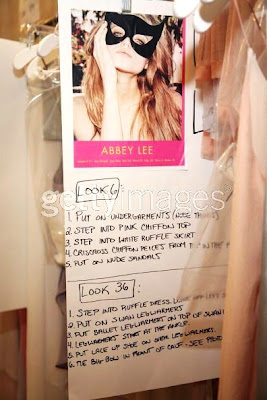 ABBEY LEE
LOOK 6:
gettyimages
1. PUT ON UNDERGARMENTS (NUDE
2. STEP INTO PINK CHIFFON TOP
3. STEP INTO WHITE RUFFLE SKIRT
4. CRISSCROSS CHIFFON PIECES FROM IN THE
5. PUT ON NUDE SANDALS
LOOK 36
1. STEP INTO RUFFLE DRESS
2. PUT ON SWAN LEGWARMERS
3. PUT BALLET LEGWARMERS ON TOP OF SWAN
4. LEGWARMERS START AT THE ANKLE.
5. PUT LACE UP SHOE ON OVER LEGWARMERS.
6. TIE BIG BOW IN FRONT OF CALF - SEE